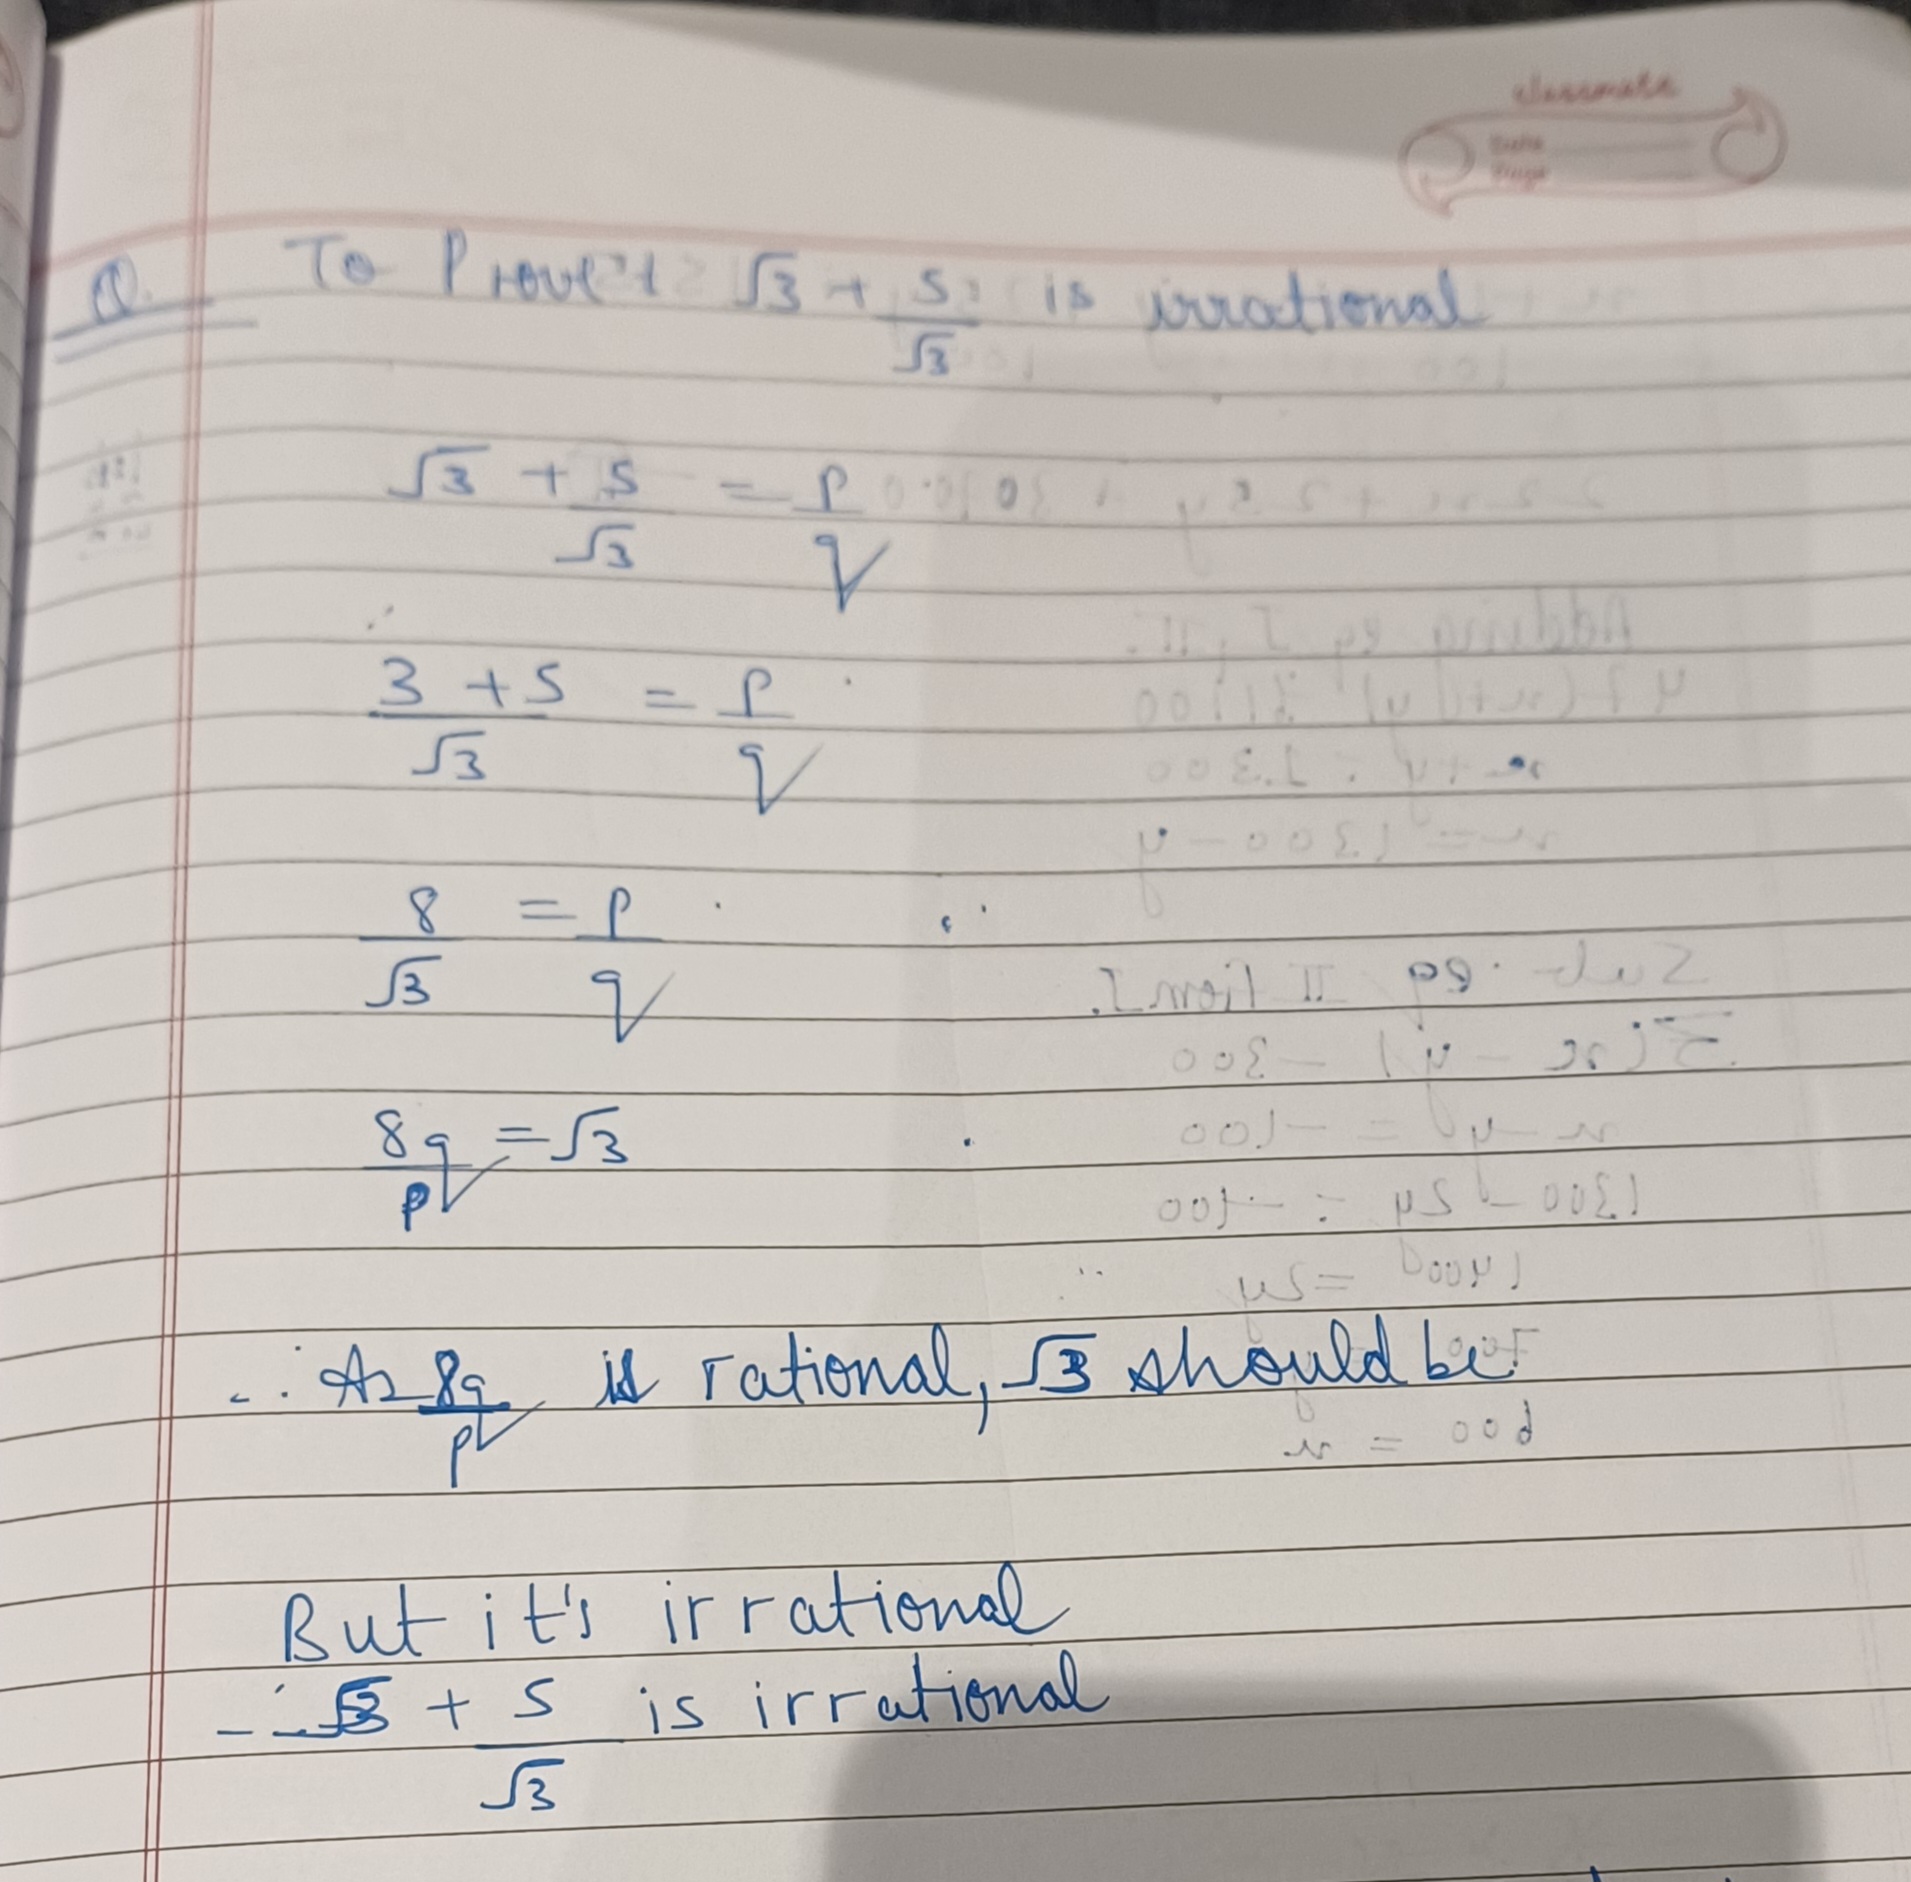 classmate
Date
Page
Q. To Prove :- √3 + 5/√3 is irrational
√3 + 5/√3 = p/q
(3 + 5)/√3 = p/q
8/√3 = p/q
8q/p = √3
∴ As 8q/p is rational, √3 should be
But it's irrational
∴ √3 + 5/√3 is irrational